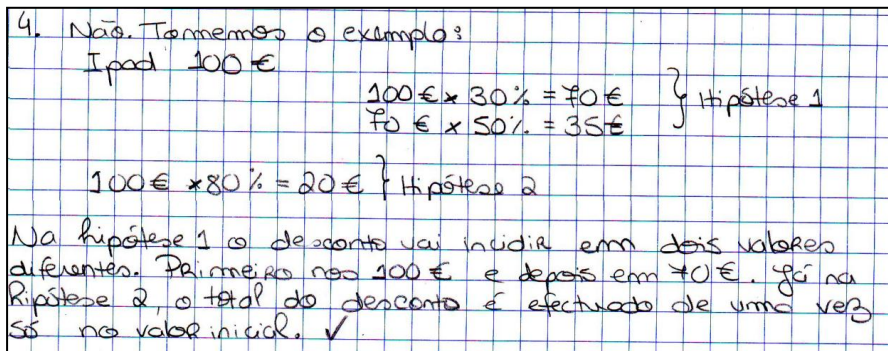 4. Não. Tomemos o exemplo:
Ipad 100 €
100 € x 30% = 70 € } Hipótese 1
70 € x 50% = 35 €
100 € x 80% = 20 € } Hipótese 2
Na hipótese 1 o desconto vai incidir em dois valores
diferentes. Primeiro nos 100 € e depois em 70 €. Já na
hipótese 2, o total do desconto é efectuado de uma vez
só no valor inicial. ✓